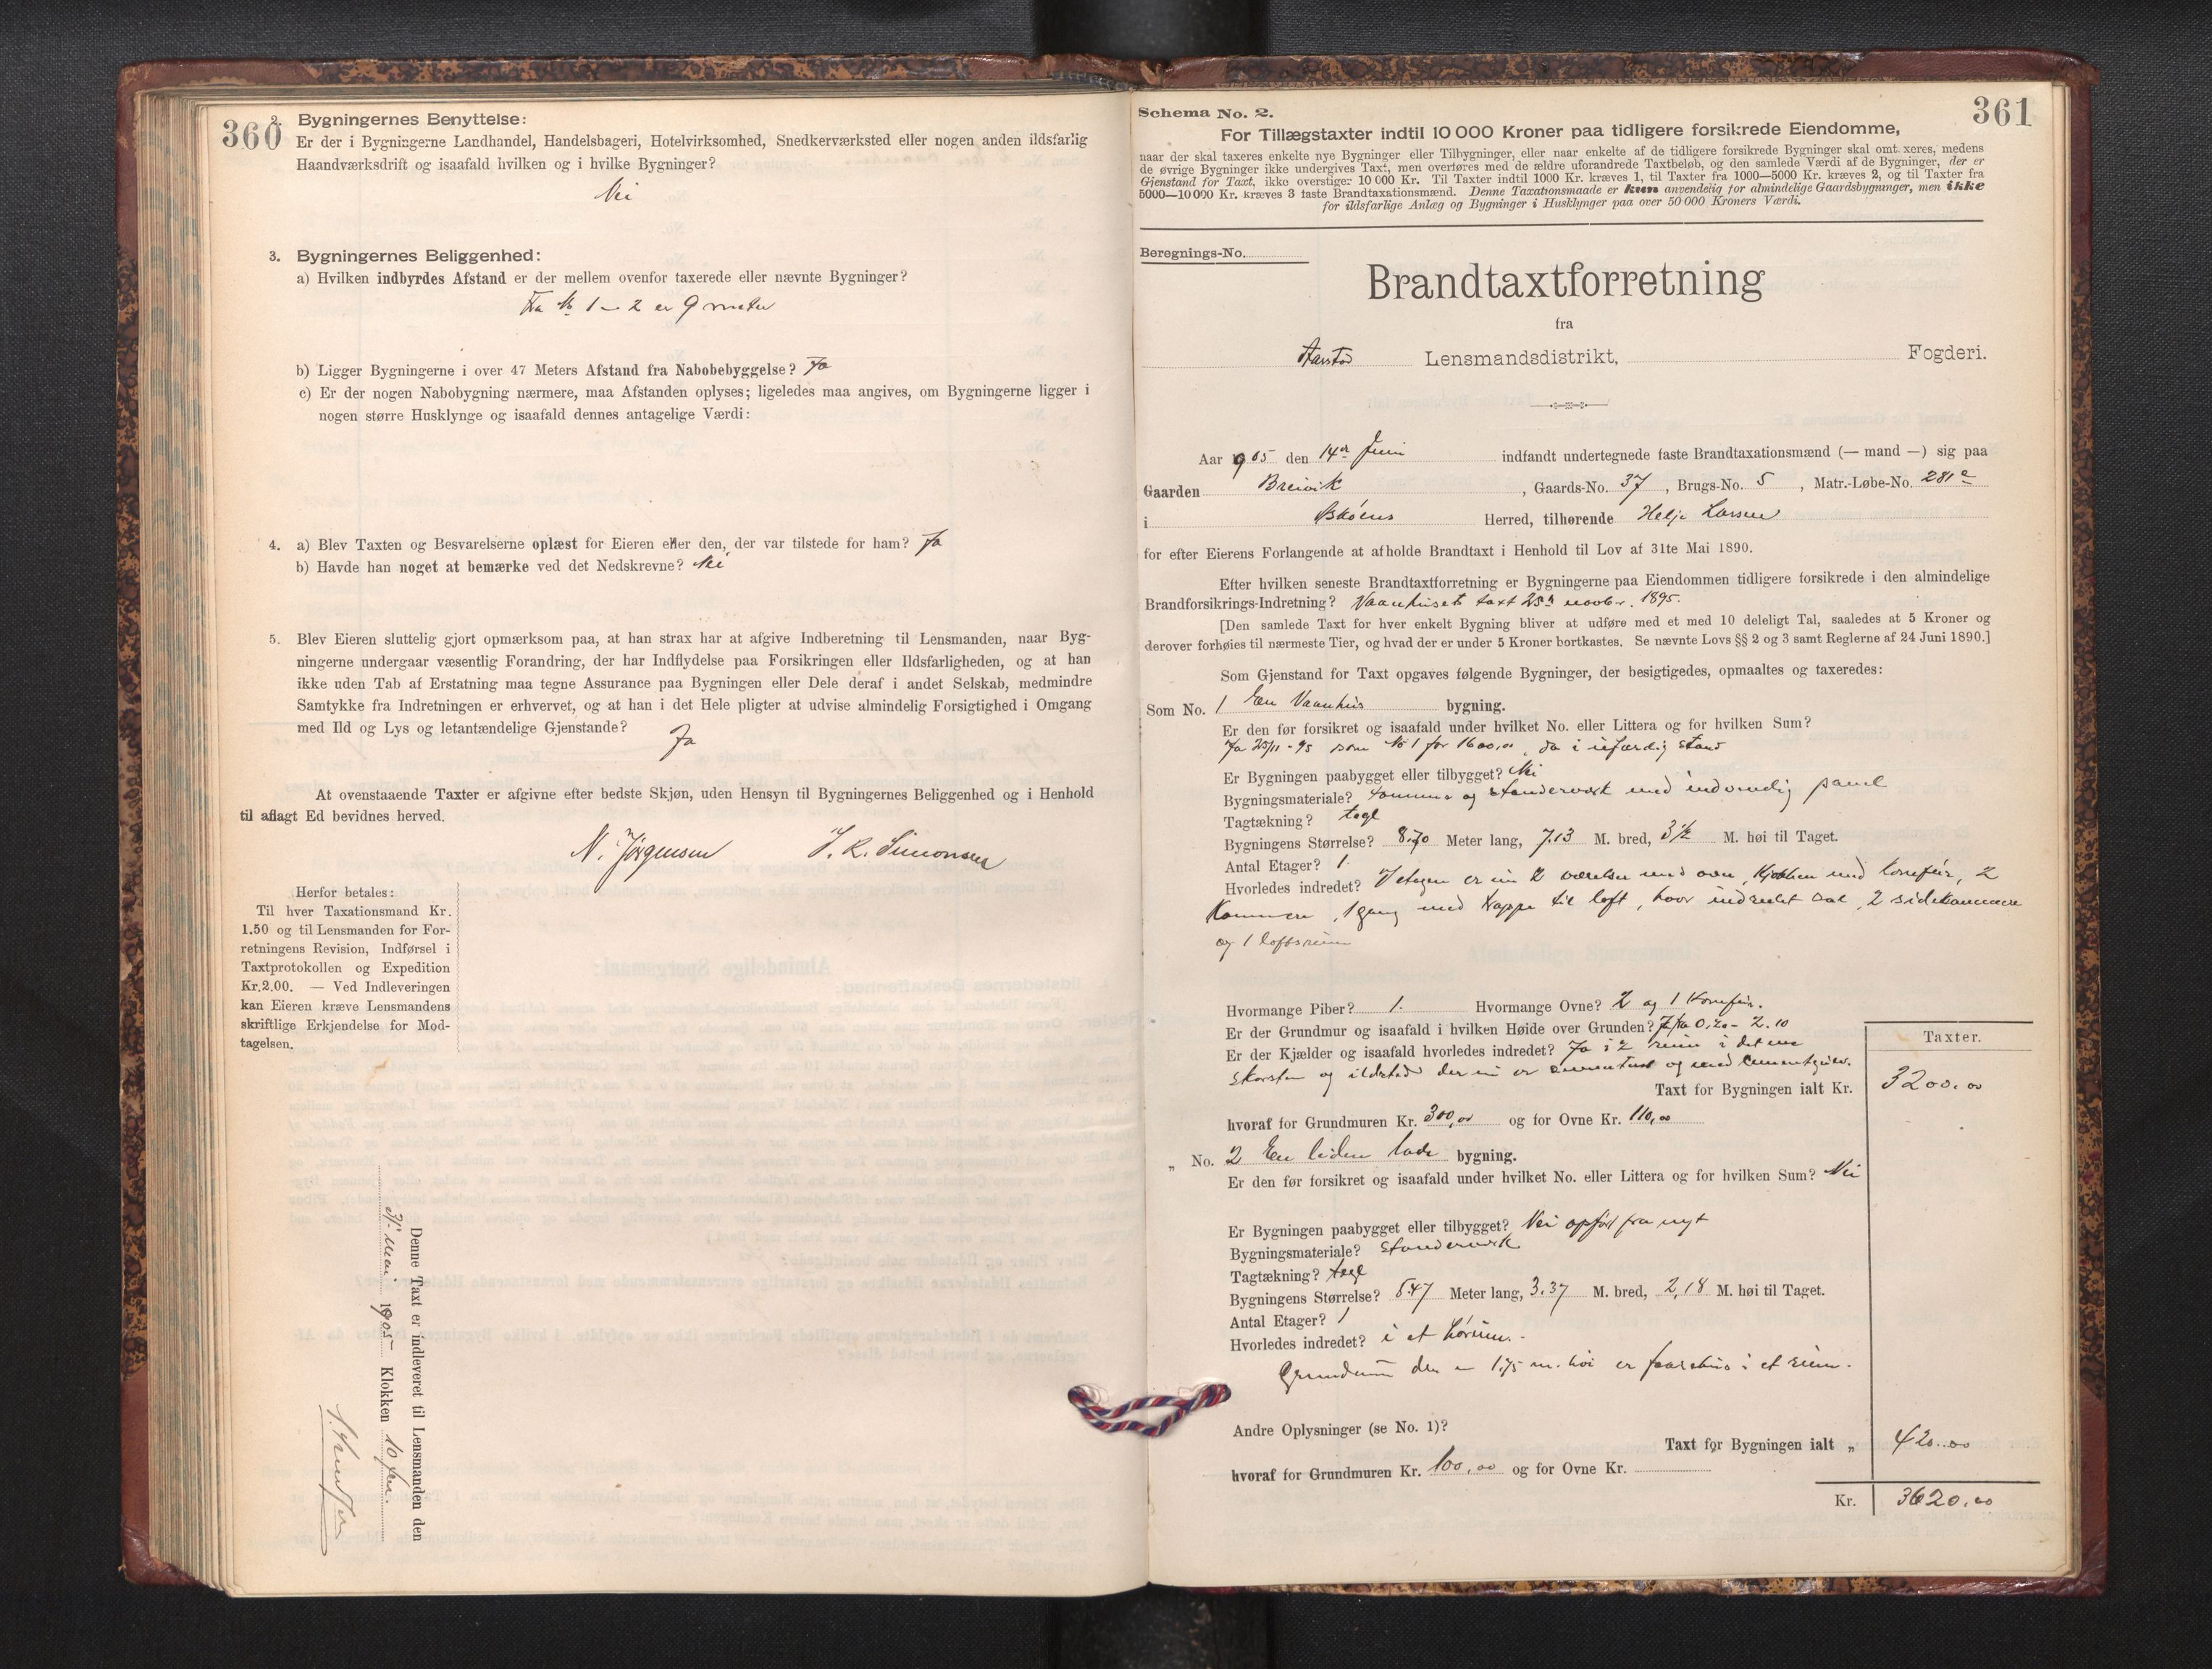 360
2. Bygningernes Benyttelse:
Er der i Bygningerne Landhandel, Handelsbageri, Hotelvirksomhed, Snedkerværksted eller nogen anden ildsfarlig
Haandværksdrift og isaafald hvilken og i hvilke Bygninger?
Nei
3. Bygningernes Beliggenhed:
a) Hvilken indbyrdes Afstand er der mellem ovenfor taxerede eller nævnte Bygninger?
Fra No 1 – 2 er 9 meter
b) Ligger Bygningerne i over 47 Meters Afstand fra Nabobebyggelse? Ja
c) Er der nogen Nabobygning nærmere, maa Afstanden oplyses; ligeledes maa angives, om Bygningerne ligger i
nogen større Husklynge og isaafald dennes antagelige Værdi:
4. a) Blev Taxten og Besvarelserne oplæst for Eieren eller den, der var tilstede for ham? Ja
b) Havde han noget at bemærke ved det Nedskrevne? Nei
5. Blev Eieren sluttelig gjort opmærksom paa, at han strax har at afgive Indberetning til Lensmanden, naar Byg-
ningerne undergaar væsentlig Forandring, der har Indflydelse paa Forsikringen eller Ildsfarligheden, og at han
ikke uden Tab af Erstatning maa tegne Assurance paa Bygningen eller Dele deraf i andet Selskab, medmindre
Samtykke fra Indretningen er erhvervet, og at han i det Hele pligter at udvise almindelig Forsigtighed i Omgang
med Ild og Lys og letantændelige Gjenstande?
Ja
At ovenstaaende Taxter er afgivne efter bedste Skjøn, uden Hensyn til Bygningernes Beliggenhed og i Henhold
til aflagt Ed bevidnes herved.
N. Jörgensen J. K. Simonsen
Herfor betales:
Til hver Taxationsmand Kr.
1.50 og til Lensmanden for For-
retningens Revision, Indførsel i
Taxtprotokollen og Expedition
Kr. 2.00. — Ved Indleveringen
kan Eieren kræve Lensmandens
skriftlige Erkjendelse for Mod-
tagelsen.
Denne Taxt er indleveret til Lensmanden den
1905 Klokken 10 fm.
361
Schema No. 2.
For Tillægstaxter indtil 10 000 Kroner paa tidligere forsikrede Eiendomme,
naar der skal taxeres enkelte nye Bygninger eller Tilbygninger, eller naar enkelte af de tidligere forsikrede Bygninger skal omtaxeres, medens
de øvrige Bygninger ikke undergives Taxt, men overføres med de ældre uforandrede Taxtbeløb, og den samlede Værdi af de Bygninger, der er
Gjenstand for Taxt, ikke overstiger 10 000 Kr. Til Taxter indtil 1000 Kr. kræves 1, til Taxter fra 1000—5000 Kr. kræves 2, og til Taxter fra
5000—10 000 Kr. kræves 3 faste Brandtaxationsmænd. Denne Taxationsmaade er kun anvendelig for almindelige Gaardsbygninger, men ikke
for ildsfarlige Anlæg og Bygninger i Husklynger paa over 50 000 Kroners Værdi.
Beregnings-No.
Brandtaxtforretning
fra
Aarstad Lensmandsdistrikt, Fogderi.
Aar 1905 den 14de Juni indfandt undertegnede faste Brandtaxationsmænd (— mand —) sig paa
Gaarden Breivik, Gaards-No. 37, Brugs-No. 5, Matr.-Løbe-No. 281c
i Askøens Herred, tilhørende Helje Larsen
for efter Eierens Forlangende at afholde Brandtaxt i Henhold til Lov af 31te Mai 1890.
Efter hvilken seneste Brandtaxtforretning er Bygningerne paa Eiendommen tidligere forsikrede i den almindelige
Brandforsikrings-Indretning? Vaanhuset taxt 25de novbr. 1895.
[Den samlede Taxt for hver enkelt Bygning bliver at udføre med et med 10 deleligt Tal, saaledes at 5 Kroner og
derover forhøies til nærmeste Tier, og hvad der er under 5 Kroner bortkastes. Se nævnte Lovs §§ 2 og 3 samt Reglerne af 24 Juni 1890.]
Som Gjenstand for Taxt opgaves følgende Bygninger, der besigtigedes, opmaaltes og taxeredes:
Som No. 1 En Vaanhus bygning.
Er den før forsikret og isaafald under hvilket No. eller Littera og for hvilken Sum?
Ja 25/11 - 95 som No 1 for 1600,00, da i ufærdig stand
Er Bygningen paabygget eller tilbygget? Nei
Bygningsmateriale? tømmer og standerværk med indvendig panel
Tagtækning? tegl
Bygningens Størrelse? 8.70 Meter lang, 7.13 M. bred, 3 1/2 M. høi til Taget.
Antal Etager? 1.
Hvorledes indredet? I etagen er en 2 værelser med ovn, kjøkken med komfür, 2
kammere, 1 gang med trappe til loft, hvor indredet sal, 2 sidekammere
og 1 loftsrum
Hvormange Piber? 1. Hvormange Ovne? 2 og 1 komfür.
Er der Grundmur og isaafald i hvilken Høide over Grunden? Ja fra 0,20 - 2.10
Er der Kjælder og isaafald hvorledes indredet? Ja i 2 rum i det ene
skorsten og ildsted der nu er cementeret og med cementgulv.
Taxter.
Taxt for Bygningen ialt Kr. 3200.00
hvoraf for Grundmuren Kr. 300,00 og for Ovne Kr. 110,00
„ No. 2 En liden lade bygning.
Er den før forsikret og isaafald under hvilket No. eller Littera og for hvilken Sum? Nei
Er Bygningen paabygget eller tilbygget? Nei opført fra nyt
Bygningsmateriale? standerværk
Tagtækning? tegl
Bygningens Størrelse? 5.47 Meter lang, 3.37 M. bred, 2,18 M. høi til Taget.
Antal Etager? 1
Hvorledes indredet? i et hørum.
Grundmur der er 1.75 m. høi er faarehus i et rum.
Andre Oplysninger (se No. 1)?
Taxt for Bygningen ialt „ 420.00
hvoraf for Grundmuren Kr. 100,00 og for Ovne Kr.
Kr. 3620,00